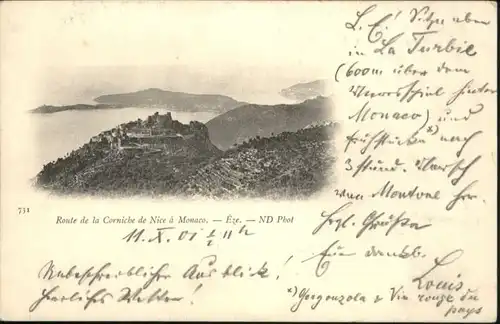 L. E.! Sitze oben
in La Turbie
(600m über dem
hinter
Monaco) und
frühstücken *) nach
3 stünd. Marsch
von Mentone her.
Hzl. Grüße
Euer dankb.
Louis
731
Route de la Corniche de Nice à Monaco. — Èze. — ND Phot
11. X. 01 ½ 11h
Unbeschreiblicher Ausblick!
herrliches Wetter!
*) Gorgonzola & Vin rouge du
pays